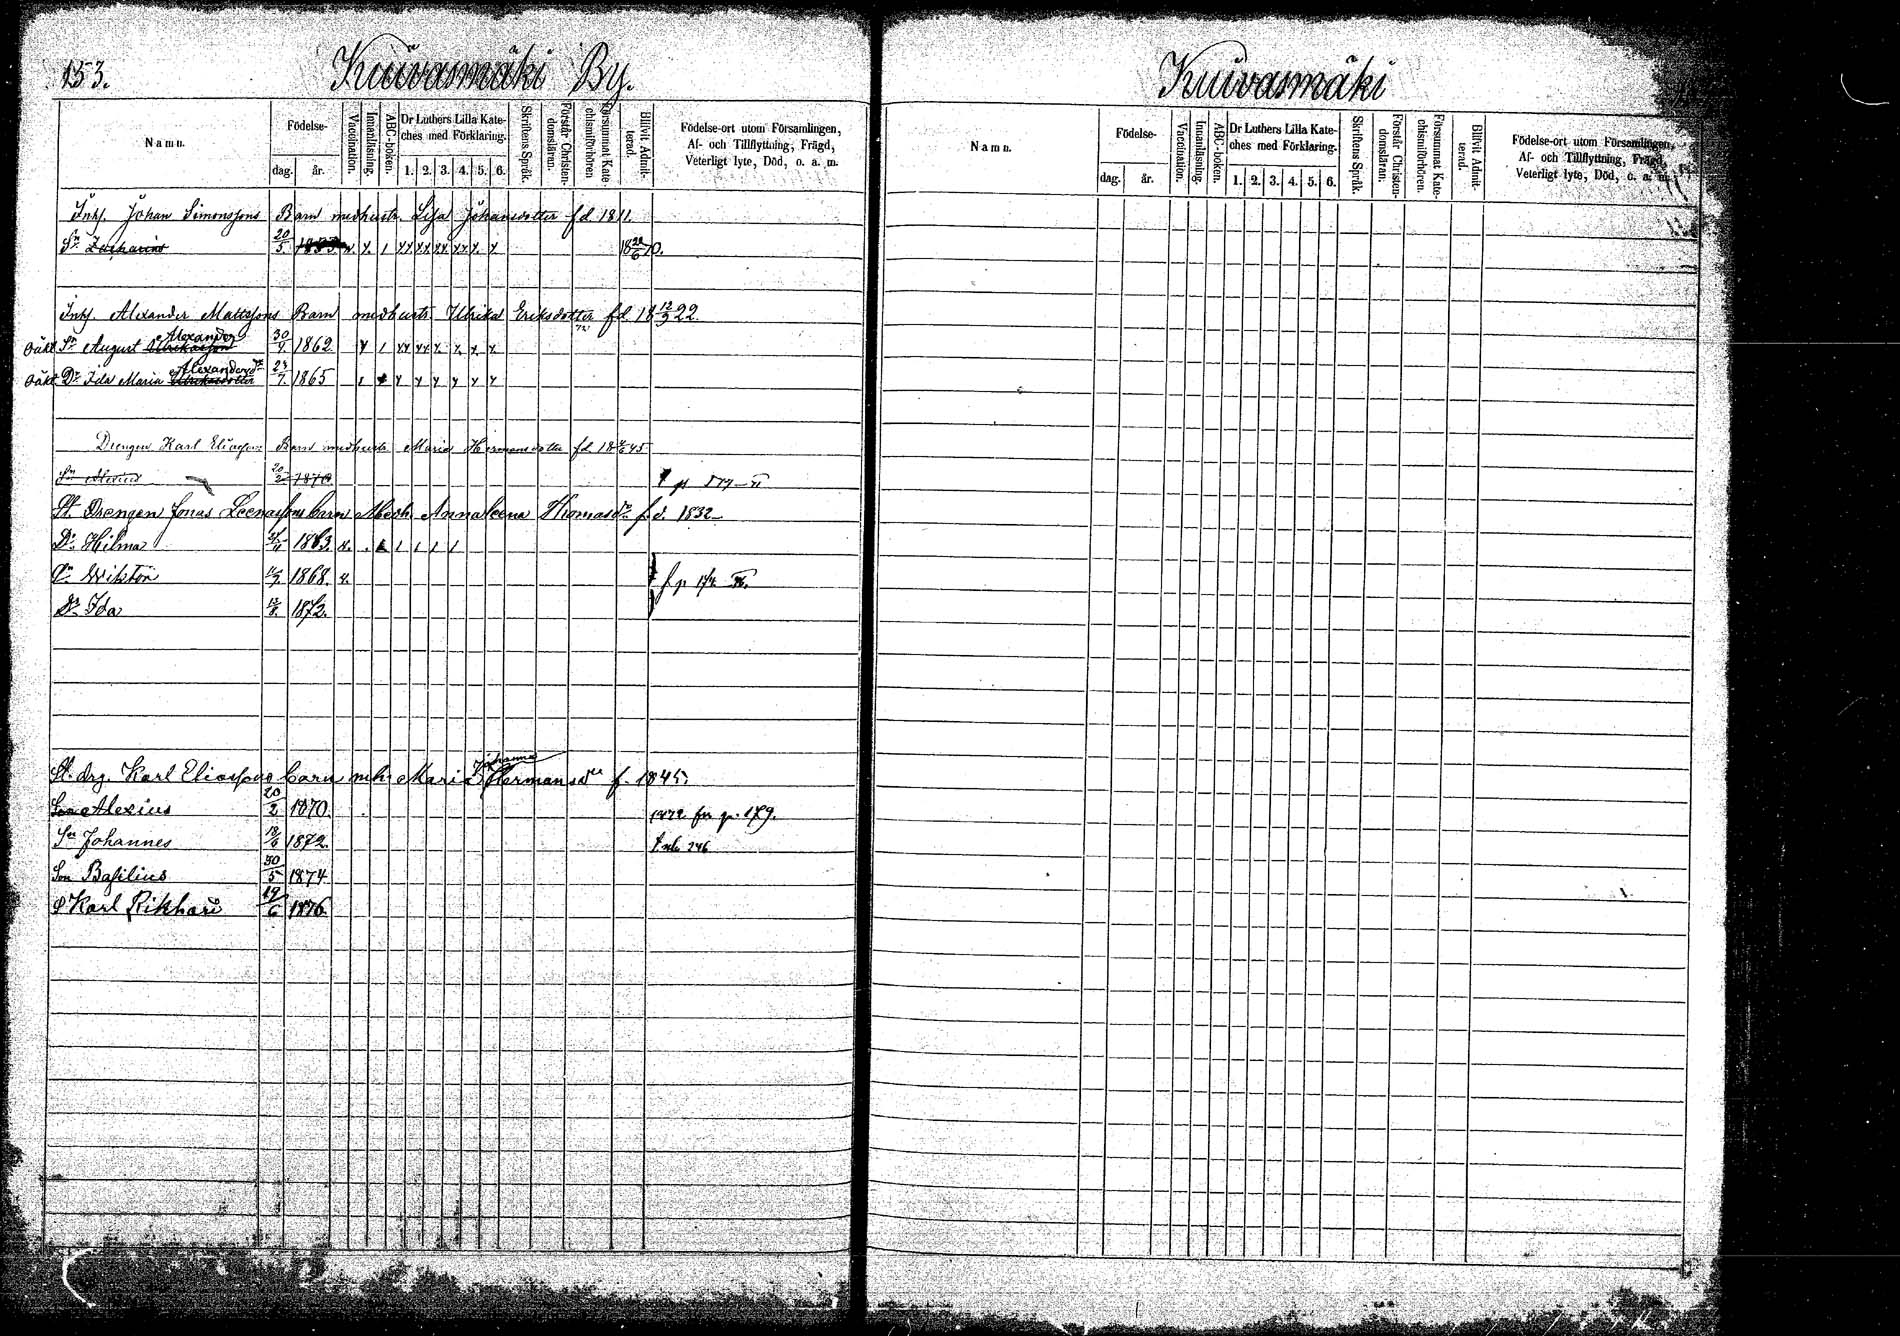 153.
Kuivasmäki By.
Namn.
Födelse-
dag.
år.
Vaccination.
Innanläsning.
ABC-boken.
Dr Luthers Lilla Kate-
ches med Förklaring.
1. 2. 3. 4. 5. 6.
Skriftens Språk.
Förstår Christen-
domsläran.
Försummat Kate
chismiförhören
Blifvit Admit-
terad.
Födelse-ort utom Församlingen,
Af- och Tillflyttning, Frägd,
Veterligt lyte, Död, o. a. m.
Inhs. Johan Simonssons Barn medhustr. Lisa Johansdotter fd 1811.
Sn Zacharias 20/5. 1853. 18 20/6 70.
Inhs. Alexander Mattssons Barn medhustr. Ulrika Eriksdotter fd 18 12/9 22.
Alexander
oäkt Sn August Ulrikasson 30/9. 1862
Alexandersdr
oäkt Dr Ida Maria Ulrikasdotter 23/7. 1865
Drengen Karl Eliasson Barn medhustr Maria Hermansdotter fd 1845
Sn Alexius 20/2 1870
St. Drengen Jonas Leenassons barn Med h. Annaleena Thomasdr f. d. 1832
Dr Hilma 1863.
Sn Wiktor 1868.
Dr Ida 1872.
Johanna
St. drg. Karl Eliassons barn mh. Maria Hermansdr f. 1845.
Son Alexius 20/2 1870. 1872 frr p. 179.
Sn Johannes 18/6 1872. 246
Son Basilius 30/5 1874
S Karl Rikhard 19/6 1876.
Kuivasmäki
Namn.
Födelse-
dag.
år.
Vaccination.
Innanläsning.
ABC-boken.
Dr Luthers Lilla Kate-
ches med Förklaring.
1. 2. 3. 4. 5. 6.
Skriftens Språk.
Förstår Christen-
domsläran.
Försummat Kate-
chismiförhören.
Blifvit Admit-
terad.
Födelse-ort utom Församlingen,
Af- och Tillflyttning, Frägd,
Veterligt lyte, Död, o. a. m.